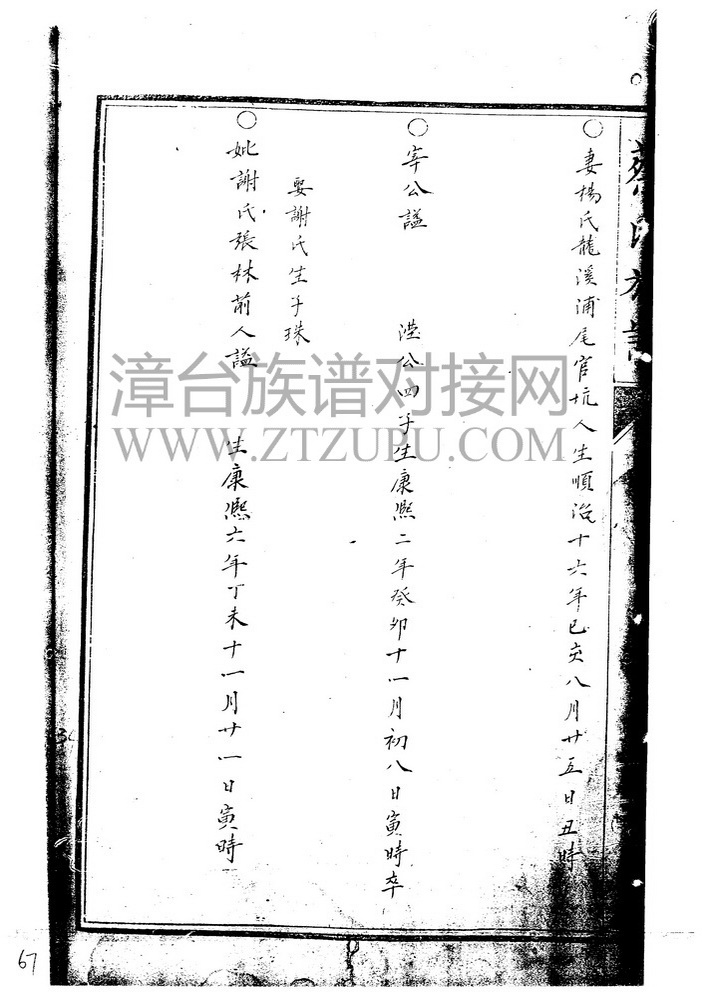 ○妻楊氏龍溪浦尾官坑人生順治十六年己亥八月廿五日丑時
○宰公謚 陞公四子生康熙二年癸卯十一月初八日寅時卒
娶謝氏生子珠
○妣謝氏張林前人謚 生康熙六年丁未十一月廿一日寅時
漳台族谱对接网
WWW.ZTZUPU.COM
67